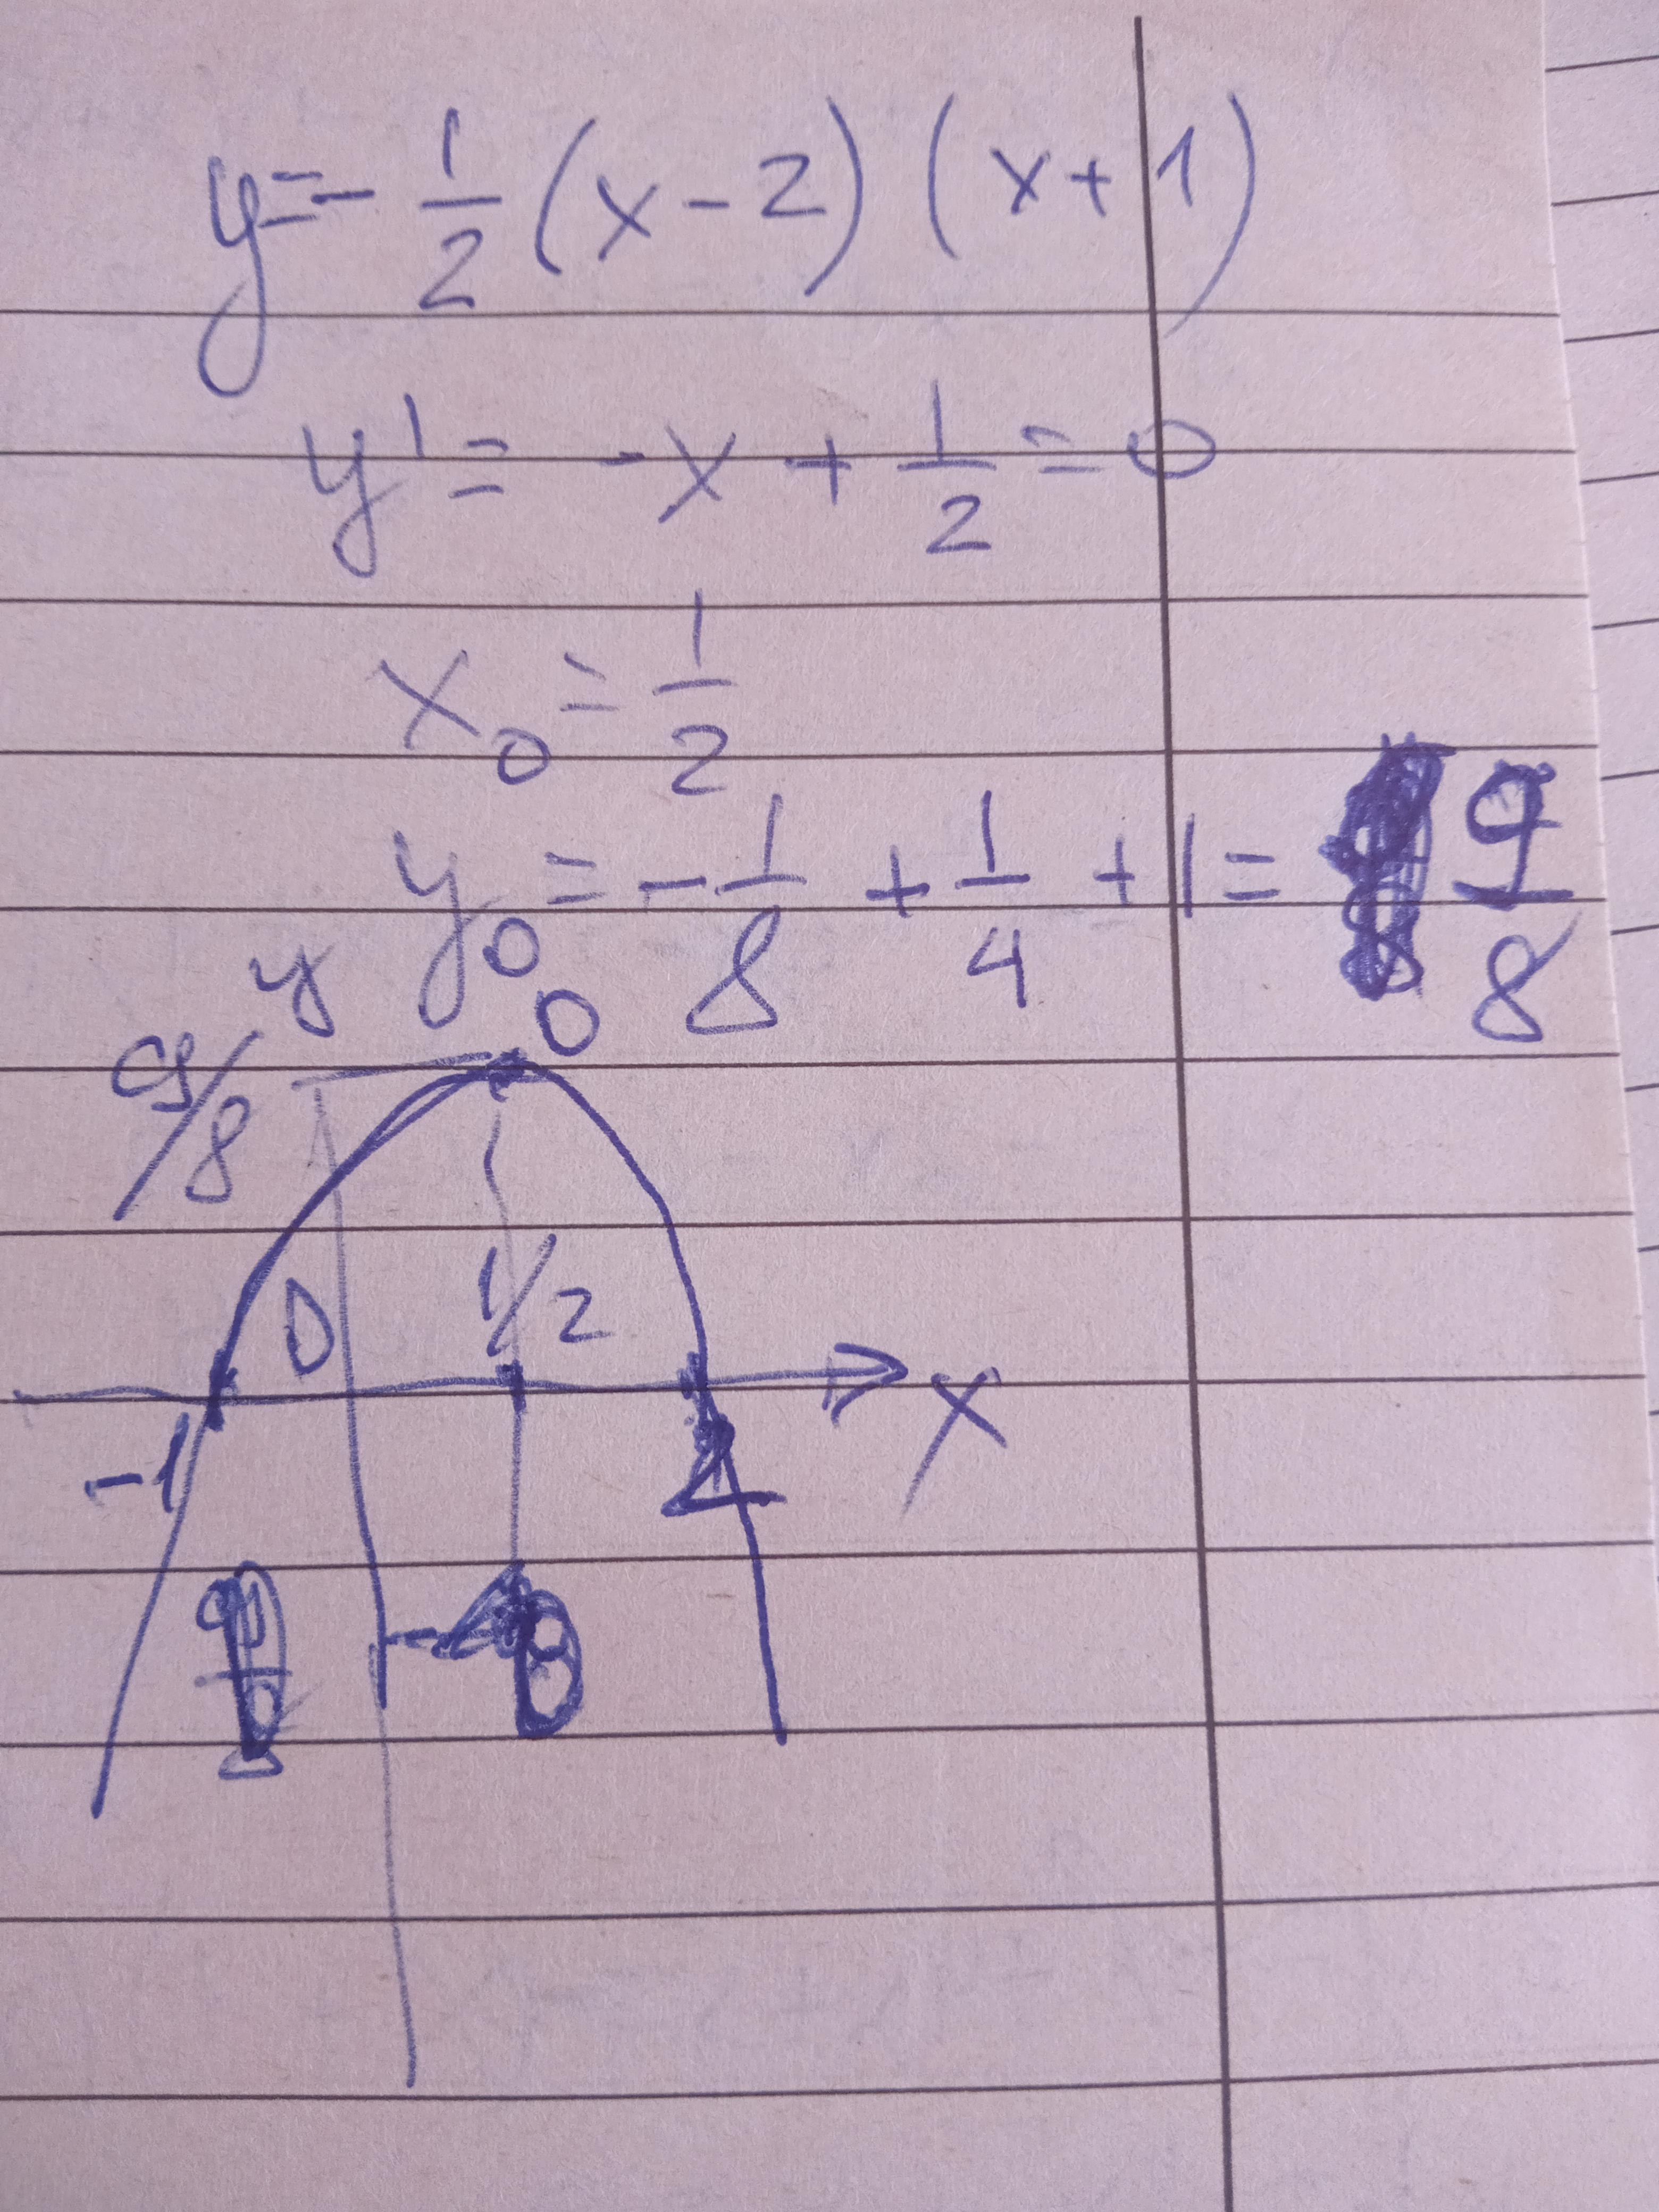 y=-1/2(x-2)(x+1)
y'=-x+1/2=0
x₀=1/2
y₀=-1/8+1/4+1=9/8
y
0
9/8
0 1/2
x
-1 2